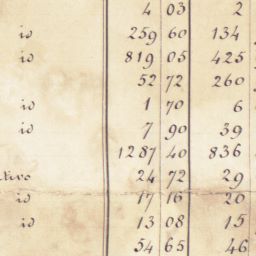 4 03 2
id 259 60 134
id 819 05 425
52 72 260
id 1 70 6
id 7 90 39
1287 40 836
24 72 29
id 17 16 20
id 13 08 15
54 65 46